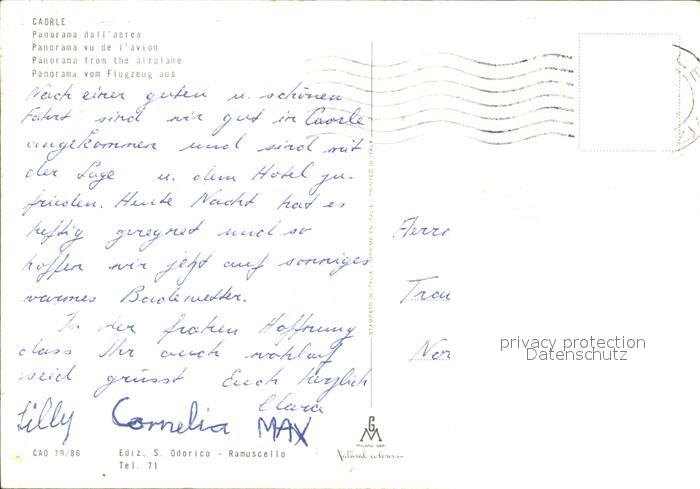 CAORLE
Panorama dall'aereo
Panorama vu de l'avion
Panorama from the airplane
Panorama vom Flugzeug aus
Nach einer guten u. schönen
Fahrt sind wir gut in Caorle
angekommen und sind mit
der Lage u. dem Hotel zu-
frieden. Heute Nacht hat es
heftig geregnet und so
hoffen wir jetzt auf sonniges
warmes Badewetter.
In der frohen Hoffnung
dass Ihr auch wohlauf
seid grüsst Euch herzlich
Clara
Lilly Cornelia MAX
CAO 79/86 Ediz. S. Odorico - Ramuscello
Tel. 71
STAMPATO IN ITALIA - IMPRIMÉ EN ITALIE - PRINTED IN ITALY
GM
MILANO DEP.
Natural colours
Herrn
Trau
Nor
privacy protection
Datenschutz